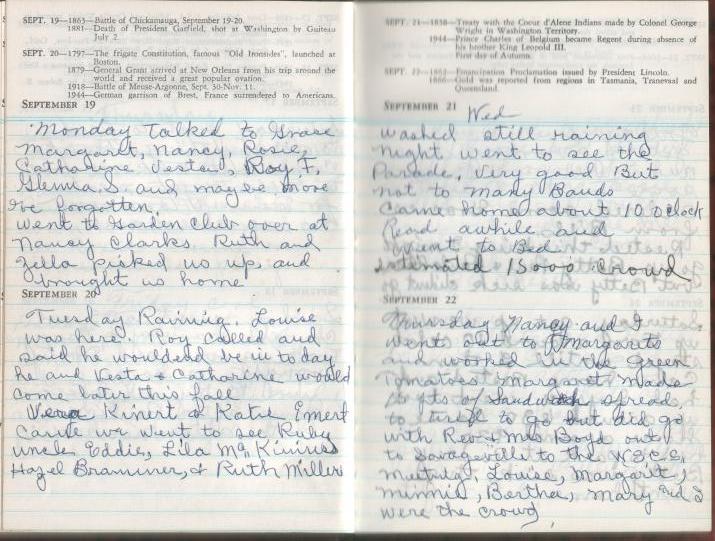 SEPT. 19—1863—Battle of Chickamauga, September 19-20.
1881—Death of President Garfield, shot at Washington by Guiteau
July 2.
SEPT. 20—1797—The frigate Constitution, famous "Old Ironsides", launched at
Boston.
1879—General Grant arrived at New Orleans from his trip around the
world and received a great popular ovation.
1918—Battle of Meuse-Argonne, Sept. 30-Nov. 11.
1944—German garrison of Brest, France surrendered to Americans.
SEPTEMBER 19
Monday Talked to Grace
Margaret, Nancy, Rosie,
Catharine Vesta, Roy F,
Glenna S and maybe more
I've forgotten.
Went to Garden Club over at
Nancy Clarks Ruth and
Zella picked us up and
brought us home
SEPTEMBER 20
Tuesday Raining. Louise
was here. Roy called and
said he wouldend be in to day
he and Vesta & Catharine would
come later this fall
Vera Kinert & Katie Emert
Came we went to see Ruby
uncle Eddie, Lila Mc Kinnis
Hazel Brammer, & Ruth Millers
SEPT. 21—1858—Treaty with the Coeur d'Alene Indians made by Colonel George
Wright in Washington Territory.
1944—Prince Charles of Belgium became Regent during absence of
his brother King Leopold III.
First day of Autumn.
SEPT. 22—1862—Emancipation Proclamation issued by President Lincoln.
1866—Gold was reported from regions in Tasmania, Transvaal and
Queensland.
SEPTEMBER 21
Wed
washed still raining
night went to see the
Parade, Very good But
not to many Bands
Came home about 10 Oclock
Read awhile and
went to Bed
estimated 15000 Crowd
SEPTEMBER 22
Thursday Nancy and I
went out to Margarets
and worked in the Green
Tomatoes, Margaret made
pts of Sandwich spread,
to tired to go but did go
with Rev & Mrs Boyd out
to Savageville to the W.S.C.S,
meeting, Louise, Margaret,
Minnie, Bertha, Mary and I
were the crowd